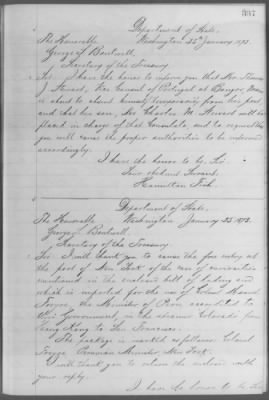 367
Department of State,
The Honorable Washington 25th January, 1873.
George S. Boutwell,
Secretary of the Treasury.
Sir: I have the honor to inform you that Mr. Thomas
J. Steward, Vice Consul of Portugal at Bangor, Maine
is about to absent himself temporarily from his post,
and that his son, Mr. Charles M. Steward will be
placed in charge of that Consulate, and to request that
you will cause the proper authorities to be informed
accordingly.
I have the honor to be, Sir,
Your obedient Servant,
Hamilton Fish.
Department of State,
The Honorable Washington January 25, 1873.
George S. Boutwell.
Secretary of the Treasury.
Sir: I will thank you to cause the free entry at
the port of New York of the case of
mentioned in the enclosed bill of lading and
which is imported for the use of Colonel Manuel
Freyre, the Minister of Peru accredited to
this Government, in the steamer Colorado from
Hong Kong to San Francisco.
The package is marked as follows: Colonel
Freyre Peruvian Minister New York.
I will thank you to return the enclosure with
your reply.
I have the honor to be Sir